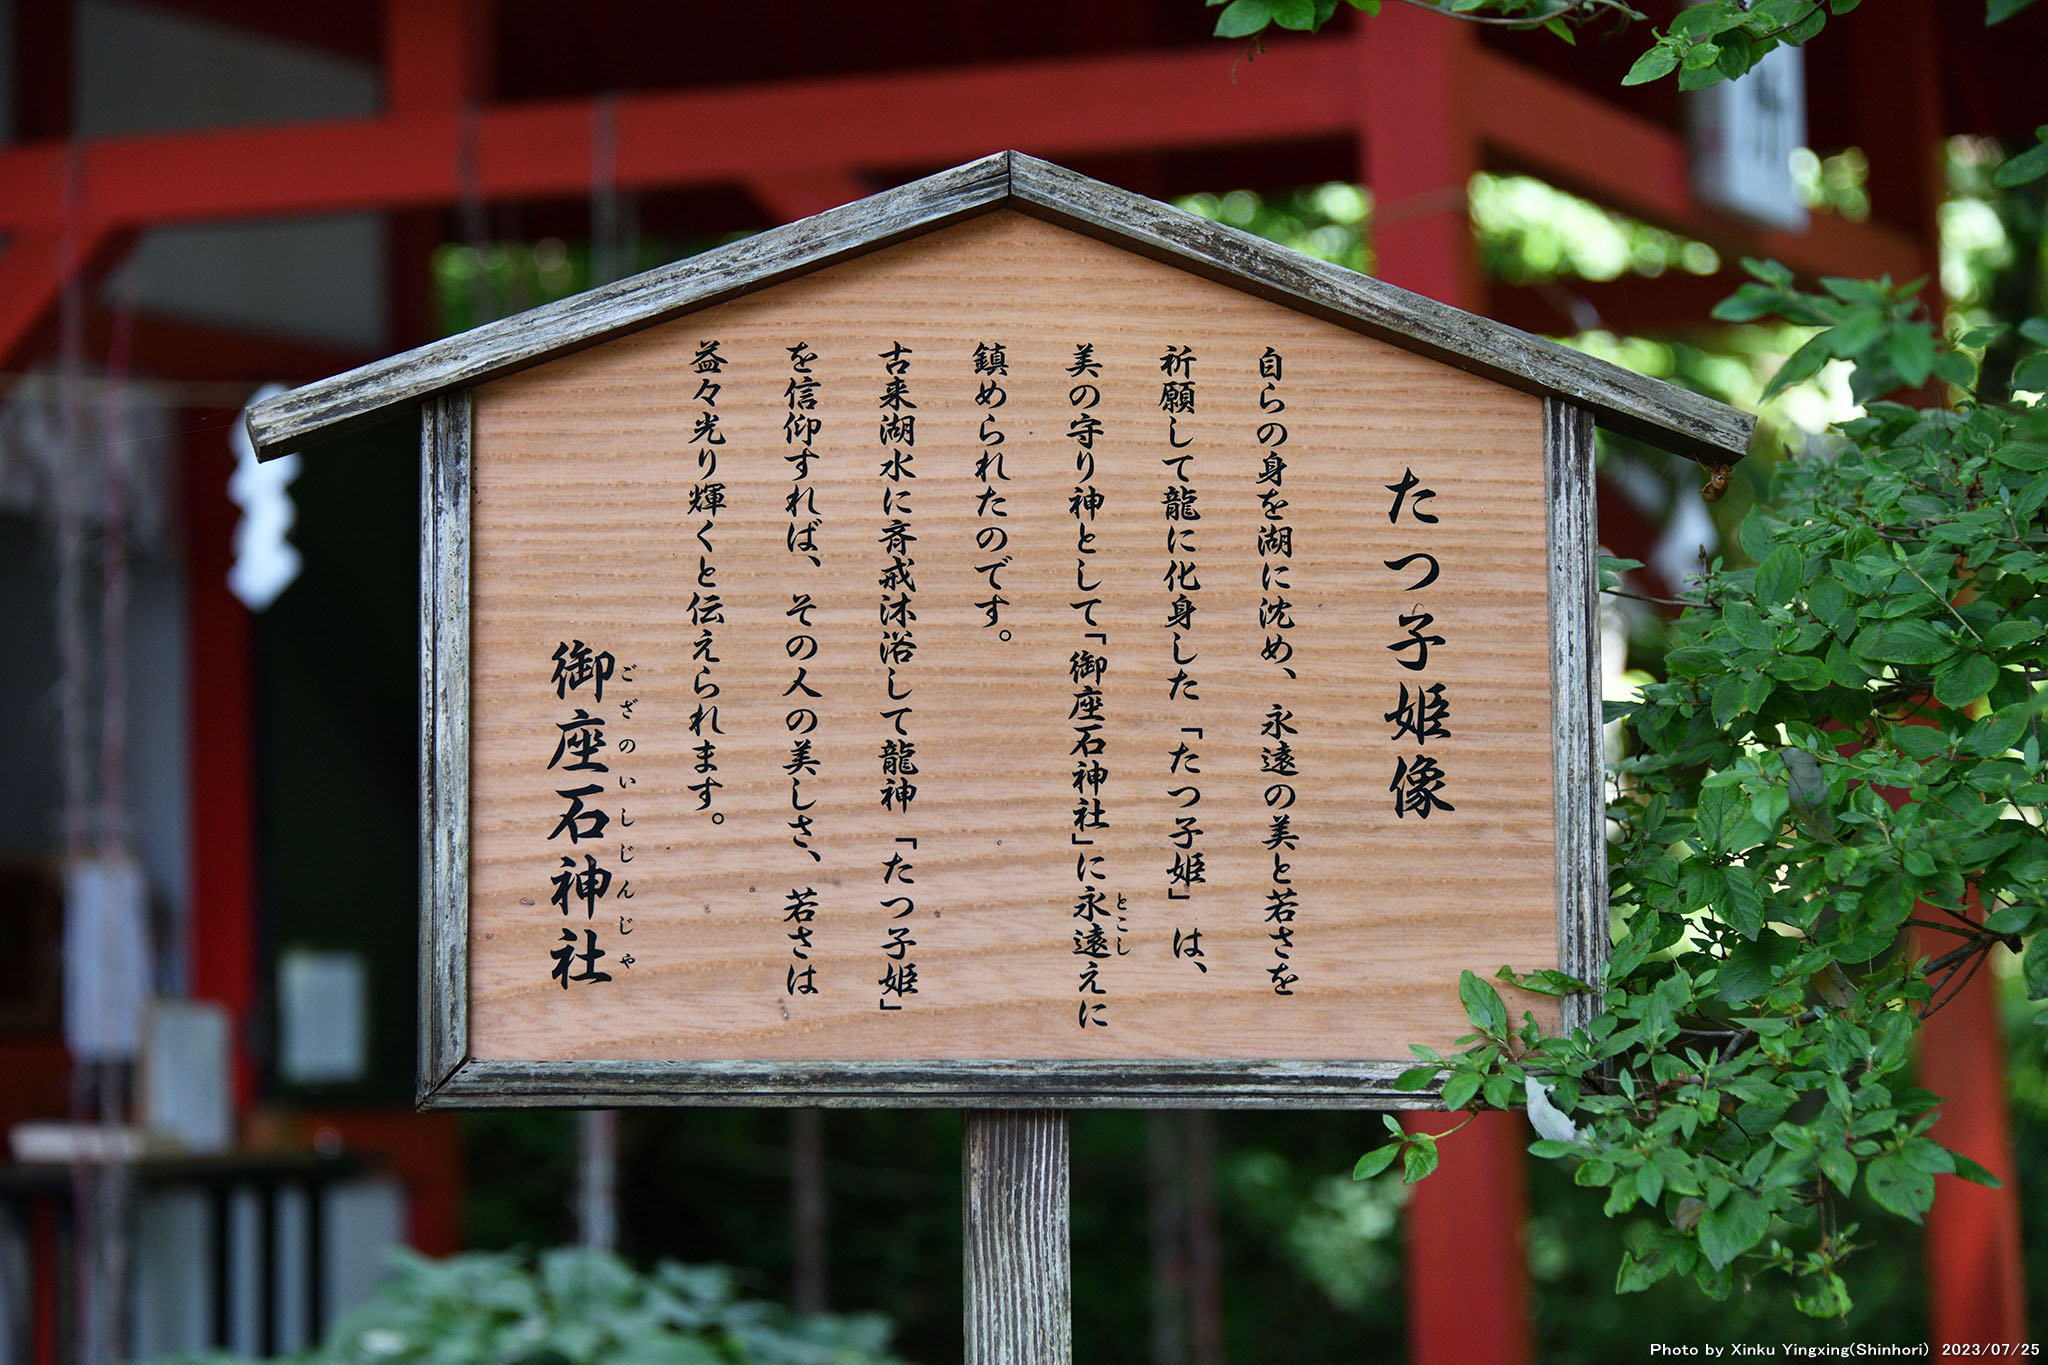 たつ子姫像
自らの身を湖に沈め、永遠の美と若さを
祈願して龍に化身した「たつ子姫」は、
美の守り神として「御座石神社」に永遠えに
とこし
鎮められたのです。
古来湖水に斉戒沐浴して龍神「たつ子姫」
を信仰すれば、その人の美しさ、若さは
益々光り輝くと伝えられます。
御座石神社
ござのいしじんじゃ
Photo by Xinku Yingxing(Shinhori) 2023/07/25